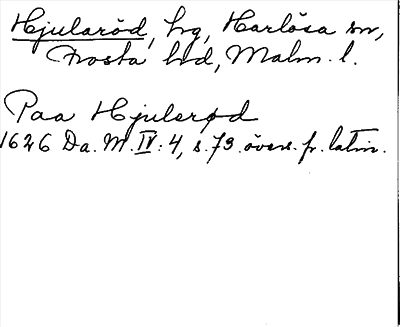 Hjularöd, hg, Harlösa sn,
Frosta hd, Malm. l.
Paa Hjulerød
1626 Da. M. IV: 4, s. 73 övers. fr. latin.